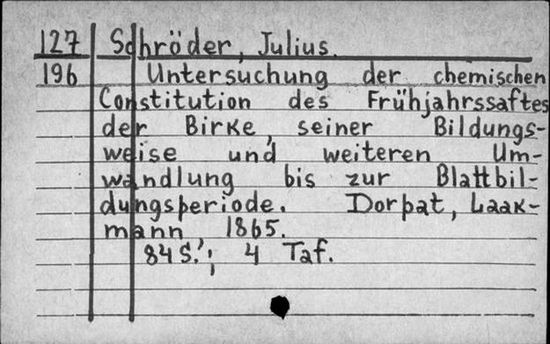 127 Schröder, Julius.
196 Untersuchung der chemischen
Constitution des Frühjahrssaftes
der Birke, seiner Bildungs-
weise und weiteren Um-
wandlung bis zur Blattbil-
dungsperiode. Dorpat, Laak-
mann 1865.
84 S.; 4 Taf.